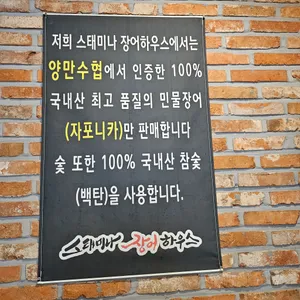 저희 스태미나 장어하우스에서는
양만수협에서 인증한 100%
국내산 최고 품질의 민물장어
(자포니카)만 판매합니다
숯 또한 100% 국내산 참숯
(백탄)을 사용합니다.
스태미나 장어하우스